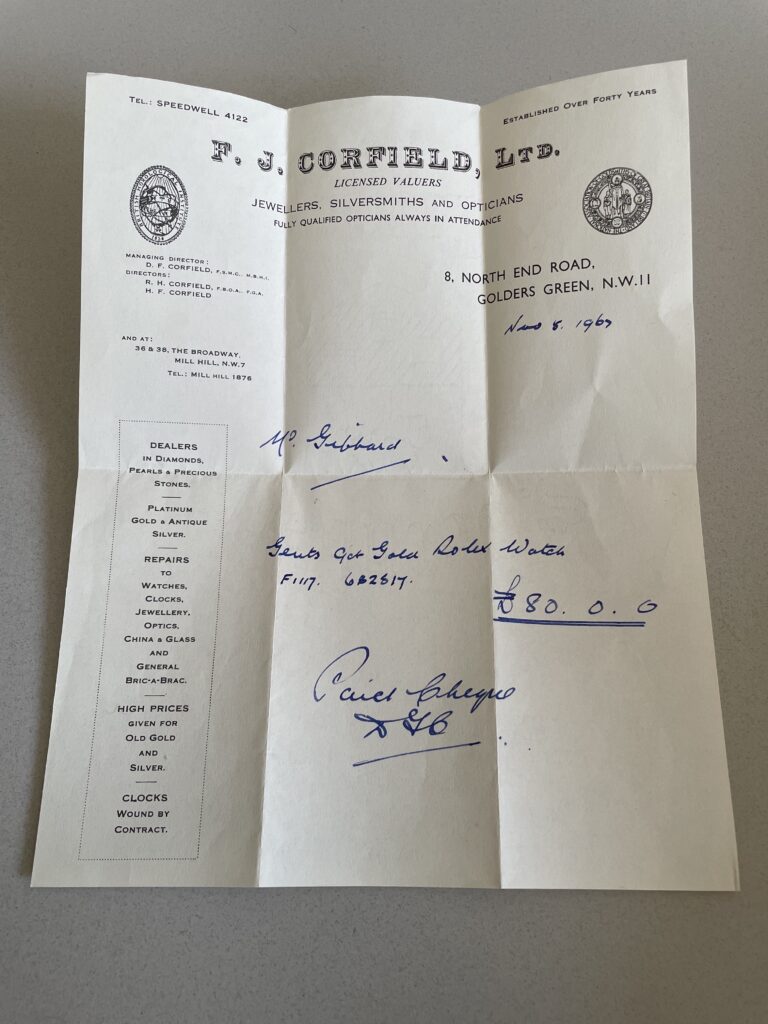 TEL.: SPEEDWELL 4122
ESTABLISHED OVER FORTY YEARS
F. J. CORFIELD, LTD.
LICENSED VALUERS
JEWELLERS, SILVERSMITHS AND OPTICIANS
FULLY QUALIFIED OPTICIANS ALWAYS IN ATTENDANCE
MANAGING DIRECTOR:
D. F. CORFIELD, F.S.M.C., M.B.H.I.
DIRECTORS:
R. H. CORFIELD, F.B.O.A., F.G.A.
H. F. CORFIELD
8, NORTH END ROAD,
GOLDERS GREEN, N.W.11
Nov 8. 1967
AND AT:
36 & 38, THE BROADWAY,
MILL HILL, N.W.7
TEL.: MILL HILL 1876
Mr. Gibbard
DEALERS
IN DIAMONDS,
PEARLS & PRECIOUS
STONES.
PLATINUM
GOLD & ANTIQUE
SILVER.
REPAIRS
TO
WATCHES,
CLOCKS,
JEWELLERY,
OPTICS,
CHINA & GLASS
AND
GENERAL
BRIC-A-BRAC.
HIGH PRICES
GIVEN FOR
OLD GOLD
AND
SILVER.
CLOCKS
WOUND BY
CONTRACT.
Gents 9ct Gold Rolex Watch
F1117. 682817.
£80. 0. 0
Paid Cheque